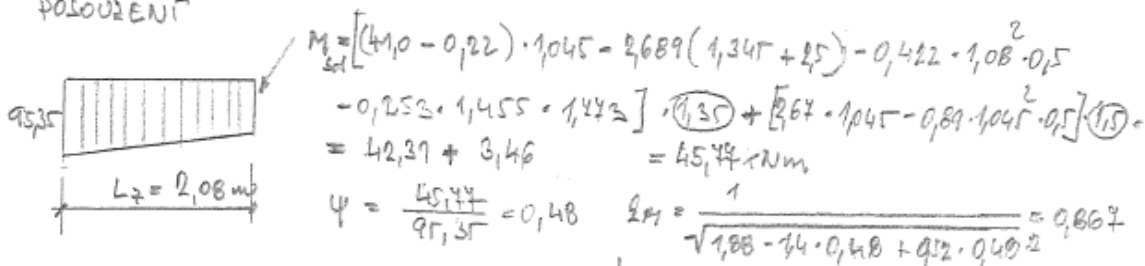 POSOUZENÍ
M_sd = [(41,0 - 0,22) · 1,045 - 2,689 (1,345 + 2,5) - 0,422 · 1,08² · 0,5
- 0,253 · 1,455 · 1,773] · 1,35 + [2,67 · 1,045 - 0,89 · 1,045² · 0,5] · 1,5 =
95,35
= 42,31 + 3,46 = 45,77 kNm
L_z = 2,08 m
ψ = 45,77 / 95,35 = 0,48 k_M = 1 / √(1,88 - 1,4 · 0,48 + 0,52 · 0,48²) = 0,867